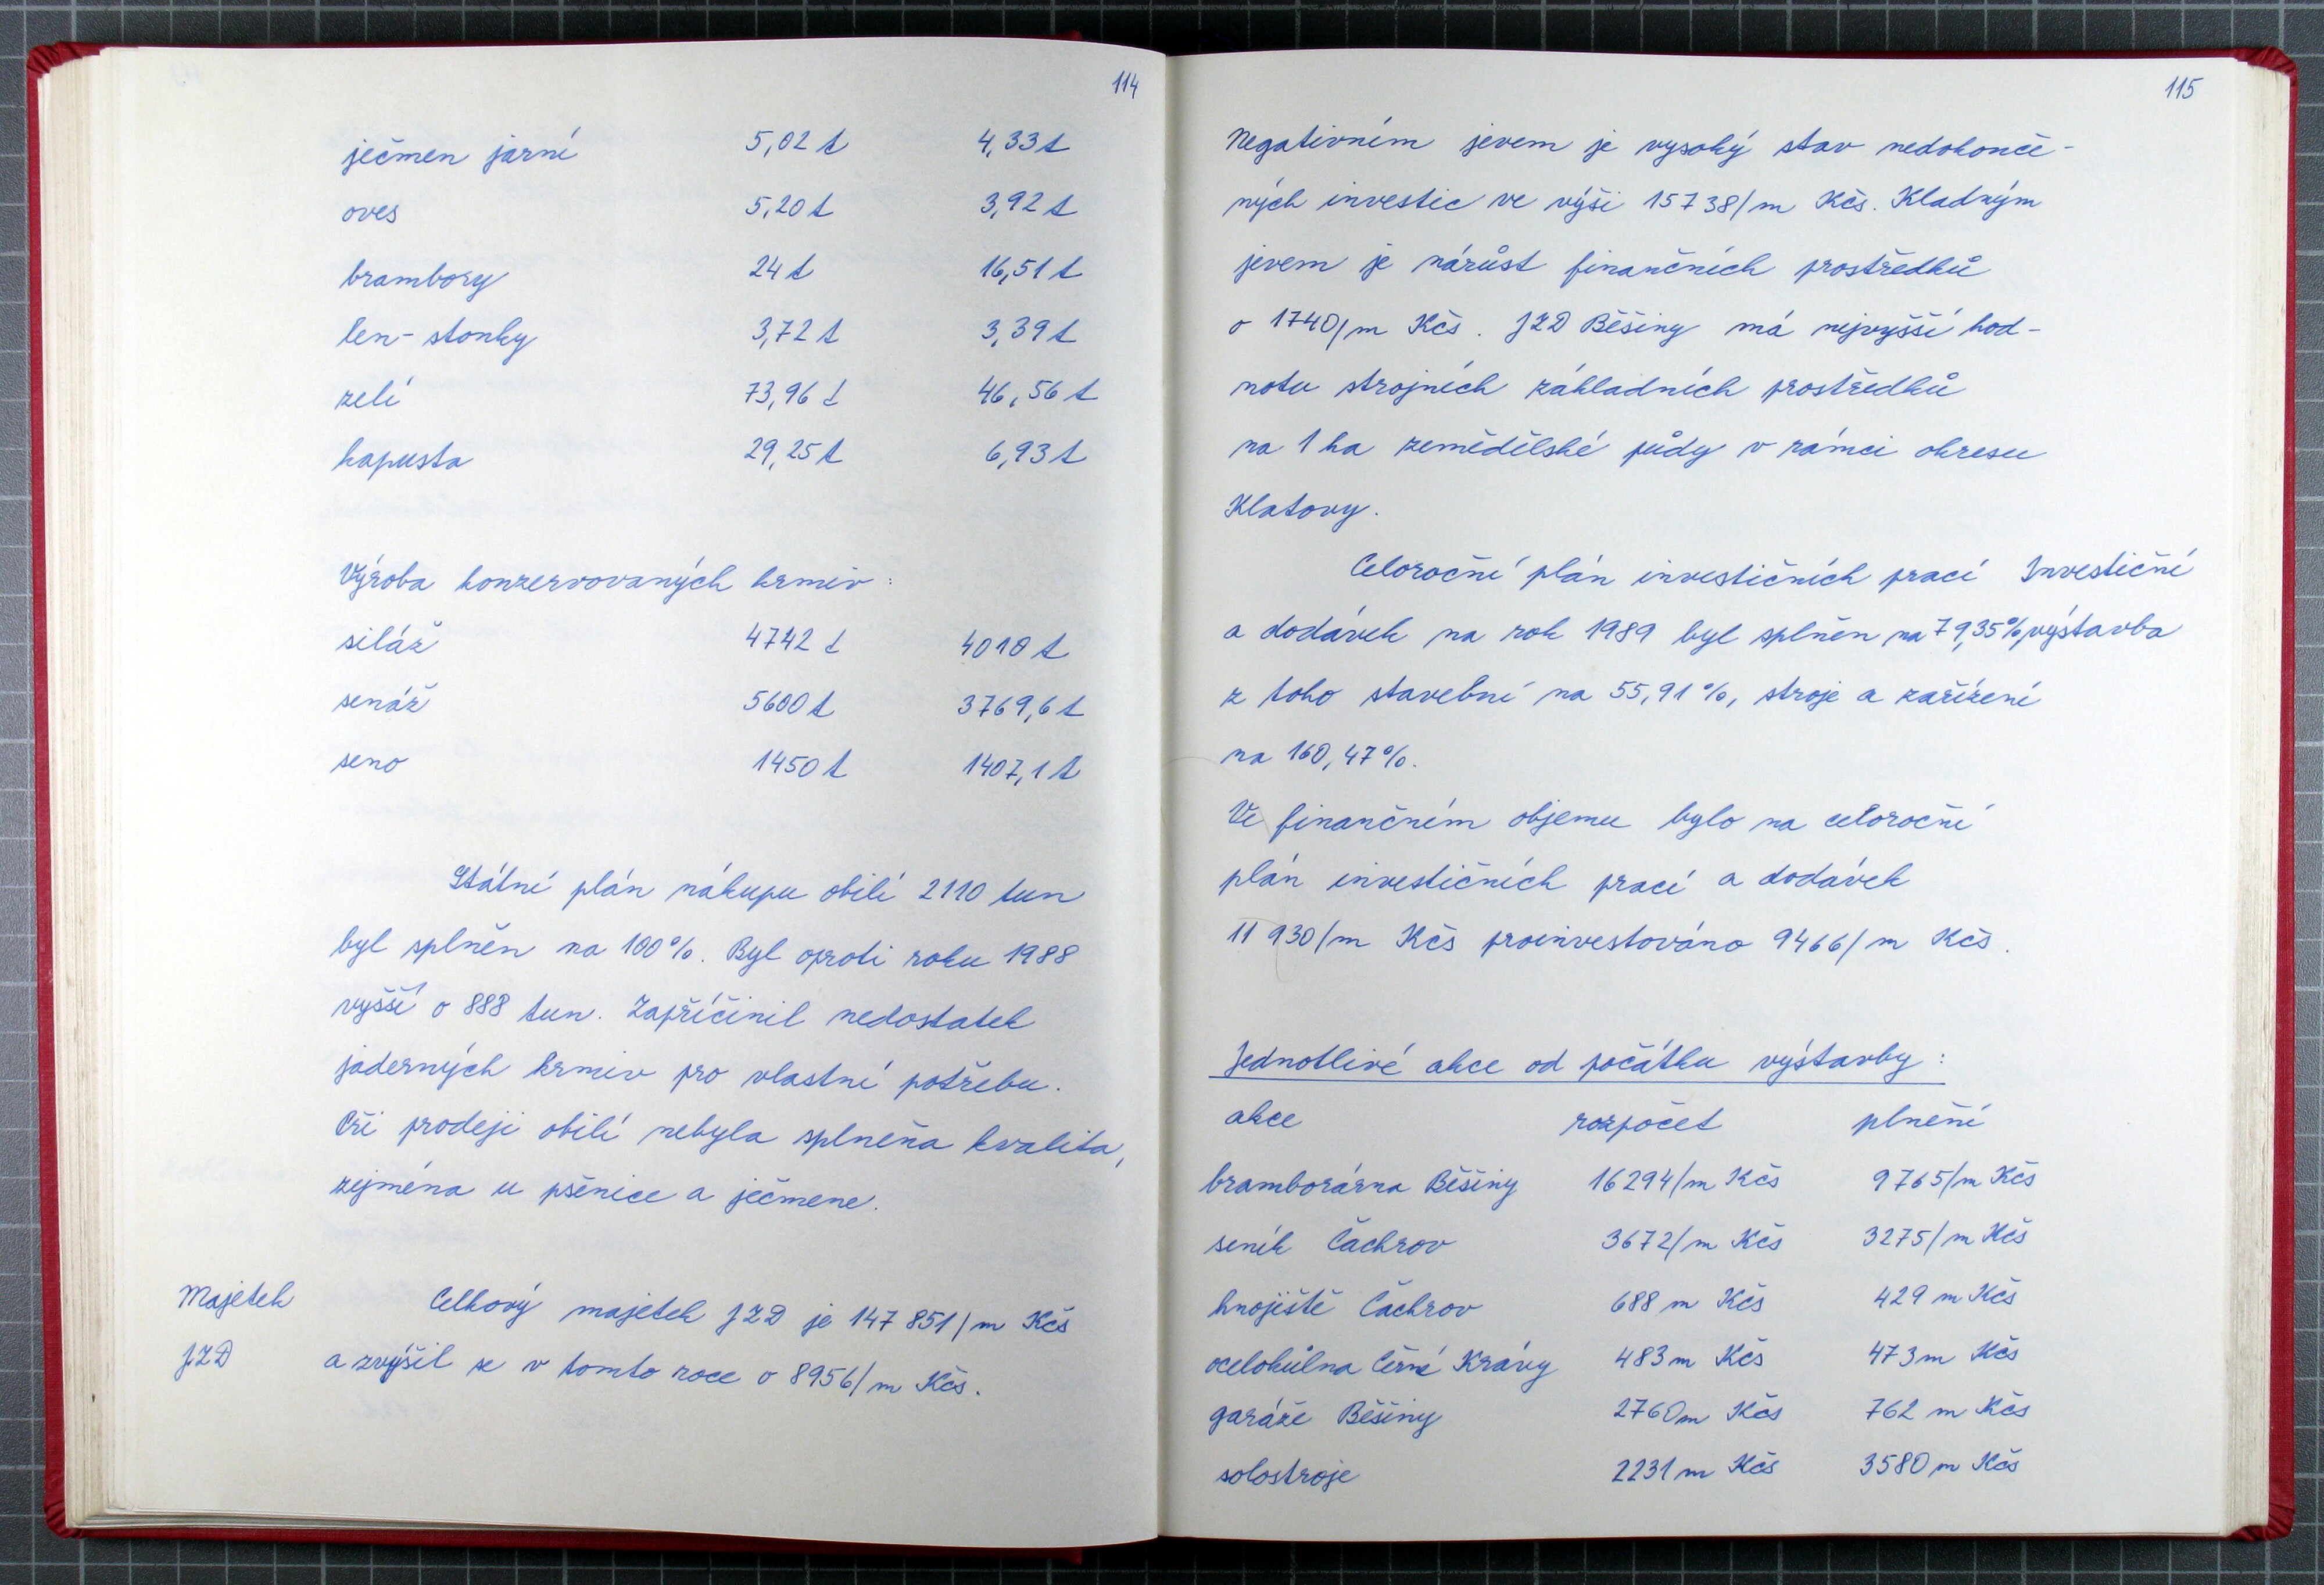 114
ječmen jarní 5,02 t 4,33 t
oves 5,20 t 3,92 t
brambory 24 t 16,51 t
len - stonky 3,72 t 3,39 t
zelí 73,96 t 46,56 t
kapusta 29,25 t 6,93 t
Výroba konzervovaných krmiv :
siláž 4742 t 4010 t
senáž 5600 t 3769,6 t
seno 1450 t 1407,1 t
Státní plán nákupu obilí 2110 tun
byl splněn na 100 %. Byl oproti roku 1988
vyšší o 888 tun. Zapříčinil nedostatek
jaderných krmiv pro vlastní potřebu.
Při prodeji obilí nebyla splněna kvalita,
zejména u pšenice a ječmene.
Majetek Celkový majetek JZD je 147 851/m Kčs
JZD a zvýšil se v tomto roce o 8956/m Kčs.
115
Negativním jevem je vysoký stav nedokonče-
ných investic ve výši 15738/m Kčs. Kladným
jevem je nárůst finančních prostředků
o 1740/m Kčs. JZD Běšiny má nejvyšší hod-
notu strojních základních prostředků
na 1 ha zemědělské půdy v rámci okresu
Klatovy.
Celoroční plán investičních prací Investiční
a dodávek na rok 1989 byl splněn na 79,35%, výstavba
z toho stavební na 55,91 %, stroje a zařízení
na 160,47 %.
Ve finančním objemu bylo na celoroční
plán investičních prací a dodávek
11 930/m Kčs proinvestováno 9466/m Kčs.
Jednotlivé akce od počátku výstavby :
akce rozpočet plnění
bramborárna Běšiny 16294/m Kčs 9765/m Kčs
seník Čachrov 3672/m Kčs 3275/m Kčs
hnojiště Čachrov 688 m Kčs 429 m Kčs
ocelokůlna Černé Krávy 483 m Kčs 473 m Kčs
garáže Běšiny 2760 m Kčs 762 m Kčs
solostroje 2231 m Kčs 3580 m Kčs